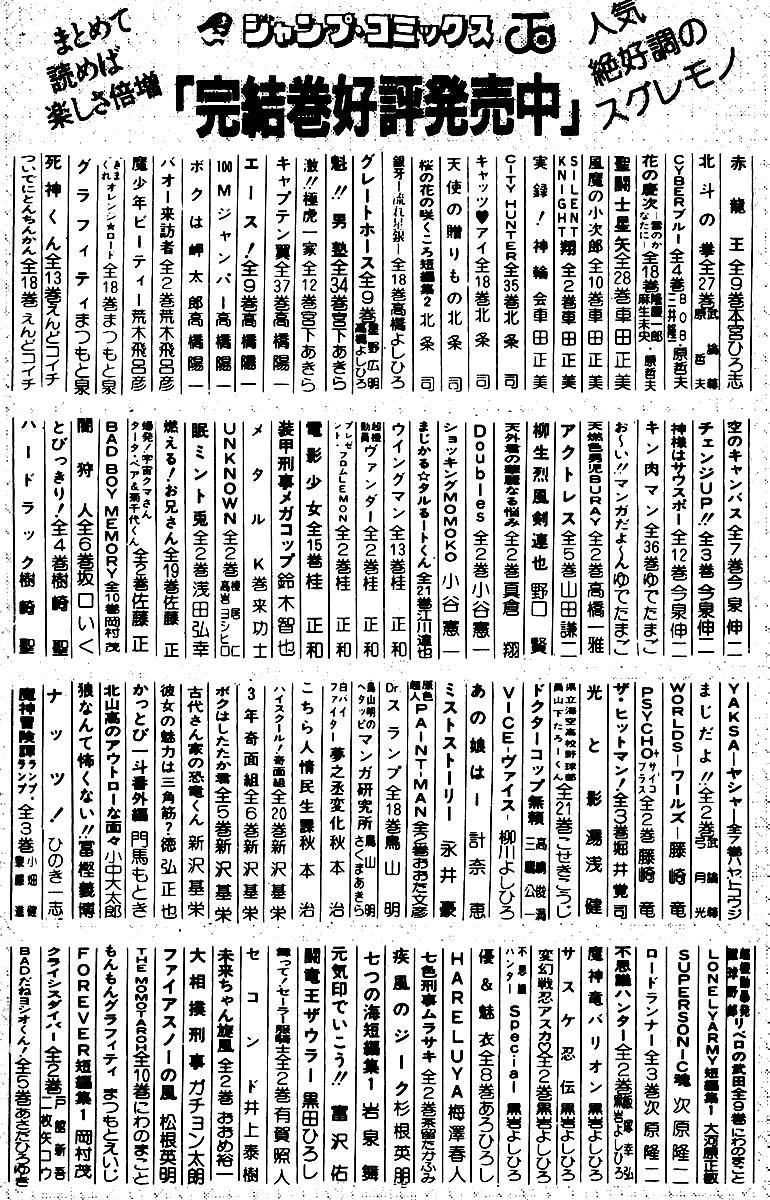 まとめて
読めば
楽しさ倍増
ジャンプ・コミックス
人気
絶好調の
スグレモノ
「完結巻好評発売中」
赤龍王 全9巻 本宮ひろ志
北斗の拳 全27巻 武論尊 原哲夫
CYBERブルー 全4巻 BOB 三井隆一 原哲夫
花の慶次―雲のかなたに― 全18巻 隆慶一郎 麻生未央 原哲夫
聖闘士星矢 全28巻 車田正美
風魔の小次郎 全10巻 車田正美
SILENT KNIGHT翔 全2巻 車田正美
実録!神輪会 車田正美
CITY HUNTER 全35巻 北条司
キャッツ♥アイ 全18巻 北条司
天使の贈りもの 北条司
桜の花の咲くころ 短編集2 北条司
銀牙―流れ星 銀― 全18巻 高橋よしひろ
グレートホース 全9巻 星野広明 高橋よしひろ
魁!!男塾 全34巻 宮下あきら
激!!極虎一家 全12巻 宮下あきら
キャプテン翼 全37巻 高橋陽一
エース! 全9巻 高橋陽一
100Mジャンパー 高橋陽一
ボクは岬太郎 高橋陽一
バオー来訪者 全2巻 荒木飛呂彦
魔少年ビーティー 荒木飛呂彦
きまぐれオレンジ★ロード 全18巻 まつもと泉
グラフィティ まつもと泉
死神くん 全13巻 えんどコイチ
ついでにとんちんかん 全18巻 えんどコイチ
空のキャンバス 全7巻 今泉伸二
チェンジUP!! 全3巻 今泉伸二
神様はサウスポー 全12巻 今泉伸二
キン肉マン 全36巻 ゆでたまご
お〜い!!マンガだよ〜ん ゆでたまご
天燃色男児BURAY 全2巻 高橋一雅
アクトレス 全5巻 山田謙二
柳生烈風剣連也 野口賢
天外君の華麗なる悩み 全2巻 真倉翔
Doubles 全2巻 小谷憲一
ショッキングMOMOKO 小谷憲一
まじかる☆タルるートくん 全21巻 江川達也
ウイングマン 全13巻 桂正和
超機動員ヴァンダー 全2巻 桂正和
プレゼント・フロムLEMON 全2巻 桂正和
電影少女 全15巻 桂正和
装甲刑事メガコップ 鈴木智也
メタルK 巻来功士
UNKNOWN 全2巻 榛居仁 高岩ヨシヒロ
眠兎 全2巻 浅田弘幸
燃える!お兄さん 全19巻 佐藤正
爆発!宇宙クマさん タータ・ベア&菊千代くん 全2巻 佐藤正
BAD BOY MEMORY 全10巻 岡村茂
闇狩人 全6巻 坂口いく
とびっきり! 全4巻 樹崎聖
ハードラック 樹崎聖
YAKSA―ヤシャ― 全7巻 ハヤトコウジ
まじだよ!! 全2巻 武論尊 弓月光
WORLDS―ワールズ― 藤崎竜
PSYCHO+ サイコプラス 全2巻 藤崎竜
ザ・ヒットマン! 全3巻 堀井覚司
光と影 湯浅健
県立海空高校野球部員山下たろーくん 全21巻 こせきこうじ
ドクターコップ無頼 高嶋俊満 三鷹公一
VICE―ヴァイス― 柳川よしひろ
あの娘は― 計奈恵
ミストストーリー 永井豪
原色超人PAINT-MAN 全2巻 おおた文彦
Dr.スランプ 全18巻 鳥山明
鳥山明のヘタッピマンガ研究所 鳥山明 さくまあきら
白バイファイター夢之丞変化 秋本治
こちら人情民生課 秋本治
ハイスクール!奇面組 全20巻 新沢基栄
3年奇面組 全6巻 新沢基栄
ボクはしたたか君 全5巻 新沢基栄
古代さん家の恐竜くん 新沢基栄
彼女の魅力は三角筋? 徳弘正也
かっとび一斗番外編 門馬もとき
北山高のアウトローな面々 小中大太郎
狼なんて怖くない!! 冨樫義博
ナッツ! ひのき一志
魔神冒険譚ランプ・ランプ 全3巻 小畑健 泉藤進
超機動暴発蹴球野郎リベロの武田 全9巻 にわのまこと
LONELY ARMY 短編集1 大河原正敏
SUPERSONIC魂 次原隆二
ロードランナー 全3巻 次原隆二
不思議ハンター 全2巻 飯塚幸弘 黒岩よしひろ
魔神竜バリオン 黒岩よしひろ
サスケ忍伝 黒岩よしひろ
変幻戦忍アスカ 全2巻 黒岩よしひろ
不思議ハンターSpecial 黒岩よしひろ
優&魅衣 全8巻 あろひろし
HARELUYA 梅澤春人
七色刑事ムラサキ 全2巻 茶留たかふみ
疾風のジーク 杉根英明
七つの海 短編集1 岩泉舞
元気印でいこう!! 富沢佑
闘竜王ザウラー 黒田ひろし
舞って!セーラー服騎士 全2巻 有賀照人
セコンド 井上泰樹
未来ちゃん旋風 全2巻 おおめ裕一
大相撲刑事 ガチョン太朗
ファイアスノーの風 松根英明
THE MOMOTAROH 全10巻 にわのまこと
もんもんグラフィティ まつもとえいじ
FOREVER 短編集1 岡村茂
クライシスダイバー 全2巻 戸舘新吾 二枚矢コウ
BADだねヨシオくん! 全5巻 あさだひろゆき